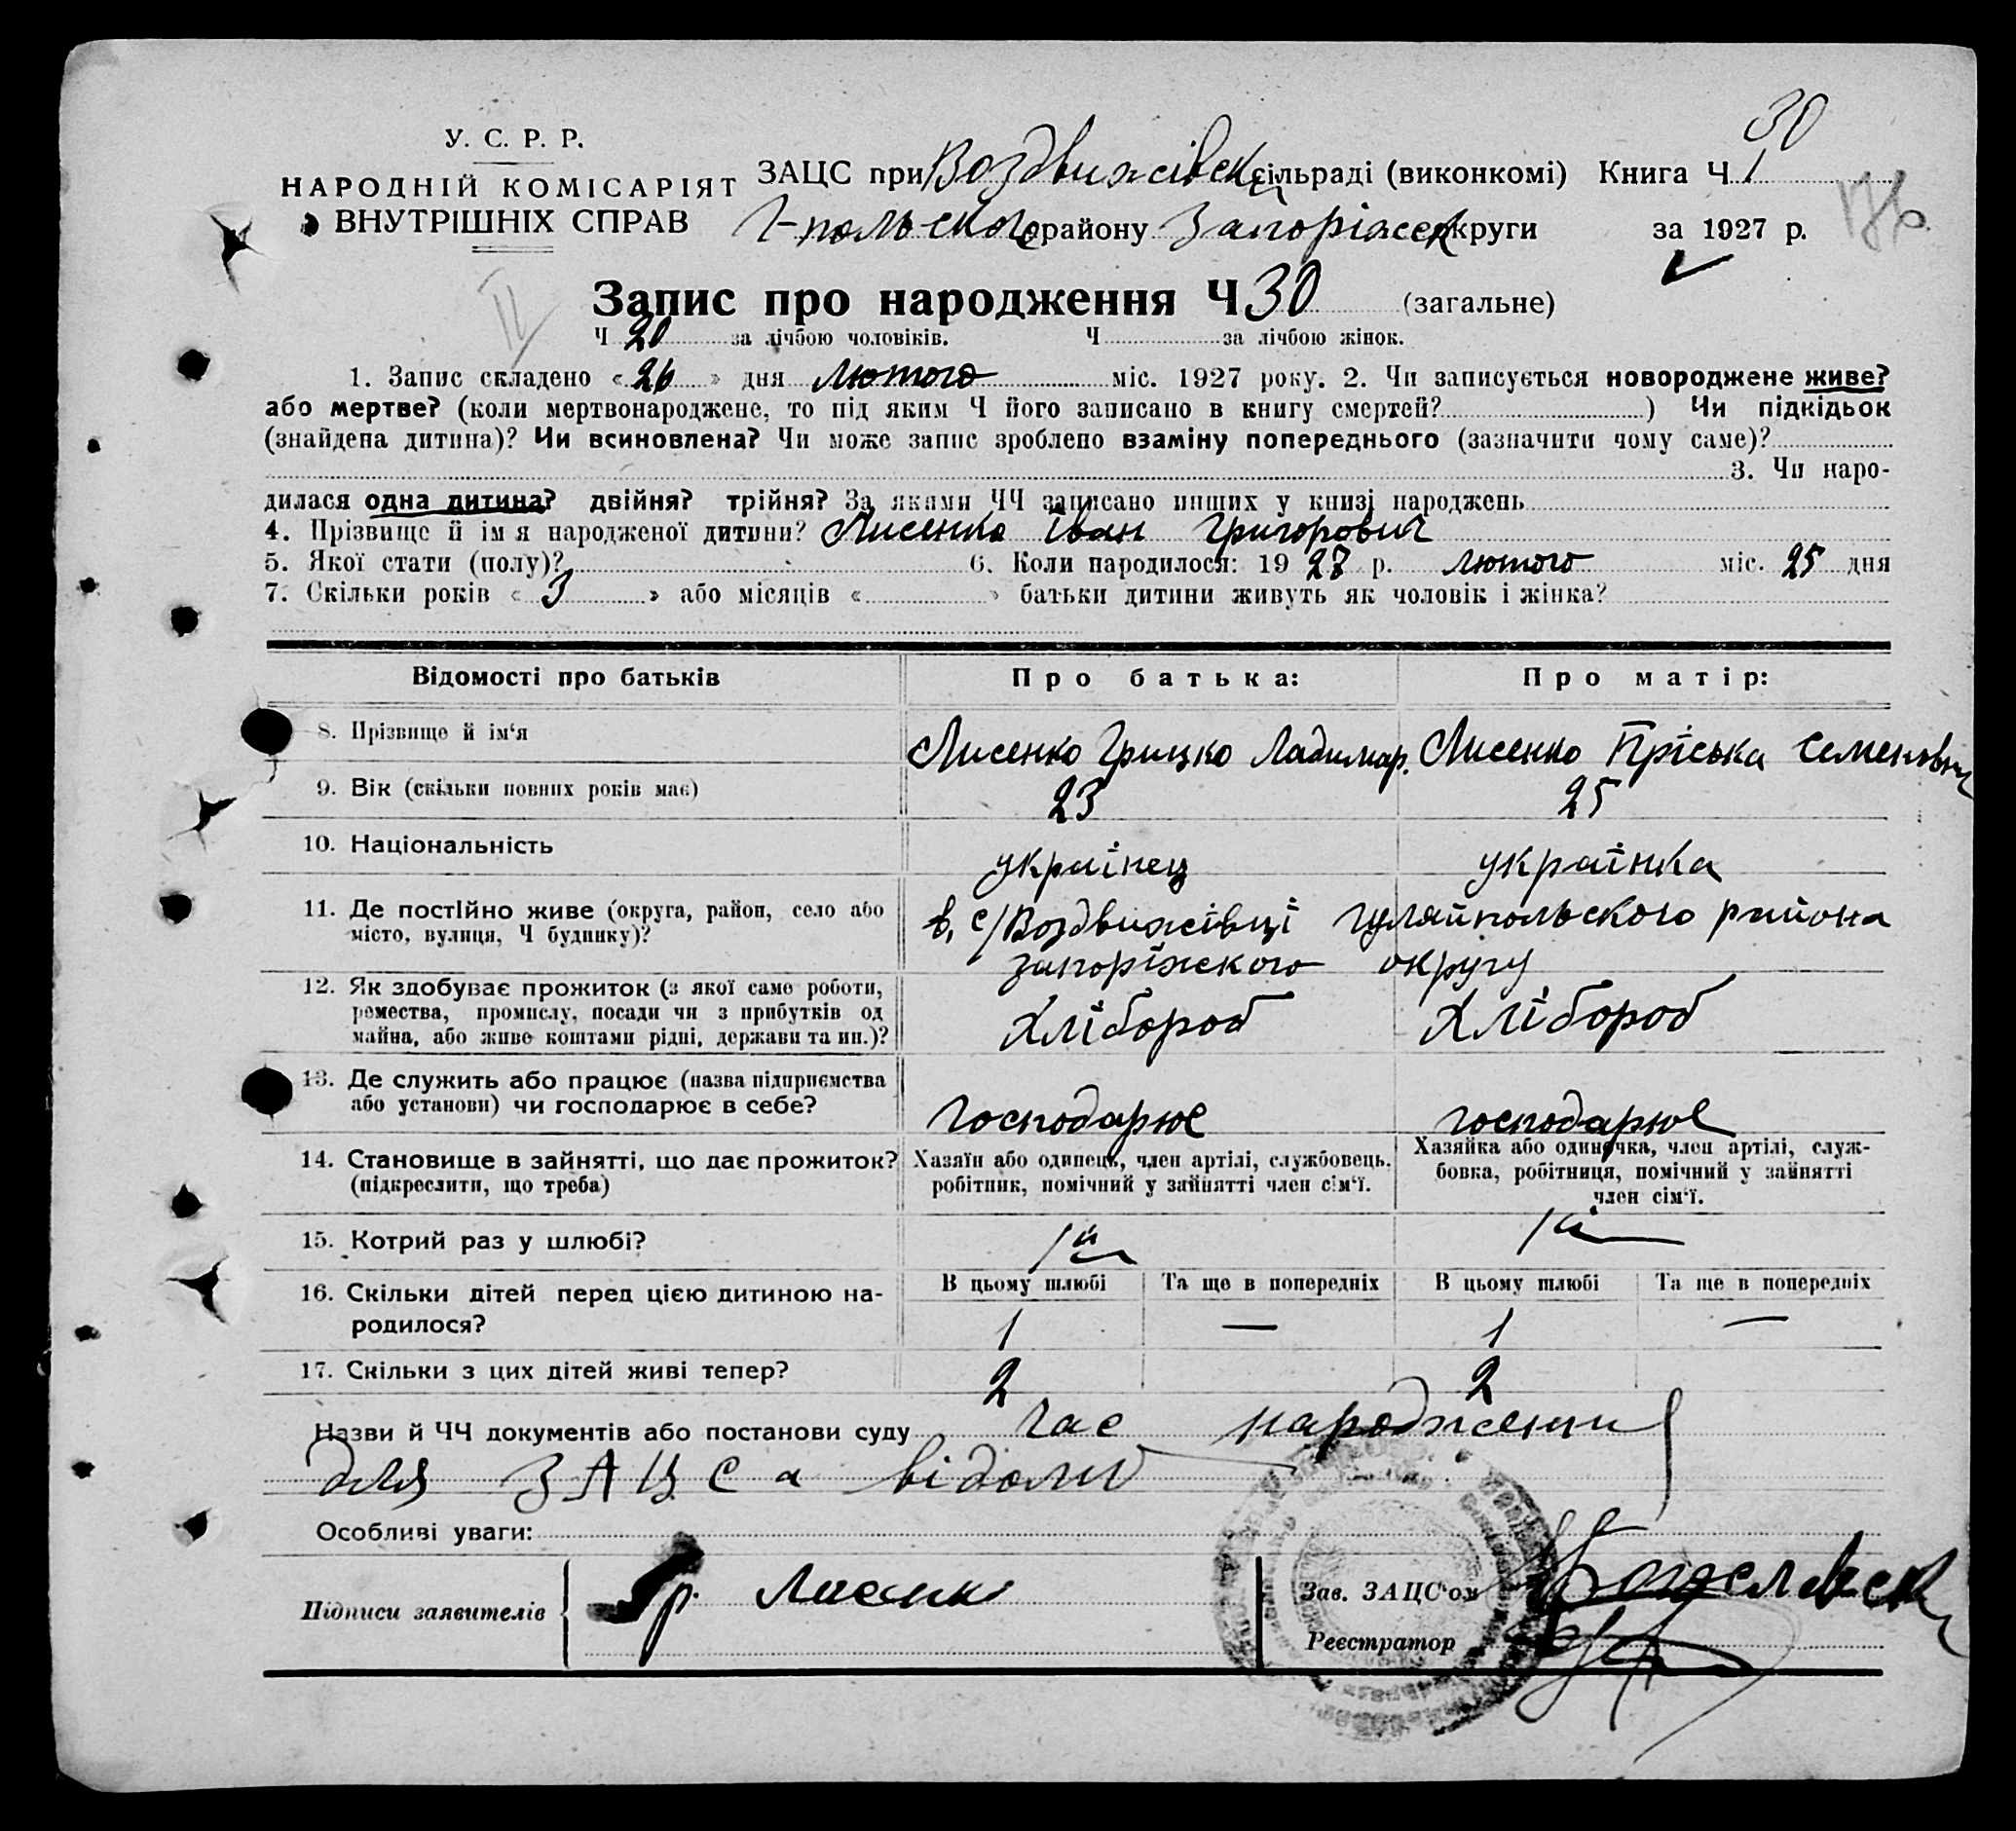 30
У. С. Р. Р.
НАРОДНІЙ КОМІСАРІЯТ
ВНУТРІШНІХ СПРАВ
ЗАЦС при Воздвижівск сільраді (виконкомі) Книга Ч 1
Г-польского району Запоріжск округи за 1927 р.
176
II
Запис про народження Ч 30 (загальне)
Ч 20 за лічбою чоловіків. Ч за лічбою жінок.
1. Запис складено « 26 » дня лютого міс. 1927 року. 2. Чи записується новороджене живе?
або мертве? (коли мертвонароджене, то під яким Ч його записано в книгу смертей? ) Чи підкідьок
(знайдена дитина)? Чи всиновлена? Чи може запис зроблено взаміну попереднього (зазначити чому саме)?
3. Чи наро-
дилася одна дитина? двійня? трійня? За якими ЧЧ записано инших у книзі народжень
4. Прізвище й імя народженої дитини? Лисенко Іван Григорович
5. Якої стати (полу)? 6. Коли народилося: 19 27 р. лютого міс. 25 дня
7. Скільки років « 3 » або місяців « » батьки дитини живуть як чоловік і жінка?
Відомості про батьків Про батька: Про матір:
8. Прізвище й ім‘я Лисенко Грицко Ладимир. Лисенко Пріська Семеновн
9. Вік (скільки повних років має) 23 25
10. Національність українец українка
11. Де постійно живе (округа, район, село або
місто, вулиця, Ч будинку)? в, с/Воздвижівці гуляйпольского района
запоріжского округу
12. Як здобуває прожиток (з якої саме роботи,
ремества, промислу, посади чи з прибутків од
майна, або живе коштами рідні, держави та ин.)? Хлібороб Хлібороб
13. Де служить або працює (назва підприємства
або установи) чи господарює в себе? господарює господарює
14. Становище в зайнятті, що дає прожиток?
(підкреслити, що треба)
Хазяїн або одинець, член артілі, службовець,
робітник, помічний у зайнятті член сім‘ї.
Хазяйка або одиночка, член артілі, служ-
бовка, робітниця, помічний у зайнятті
член сім‘ї.
15. Котрий раз у шлюбі? 1й 1й
16. Скільки дітей перед цією дитиною на-
родилося?
В цьому шлюбі Та ще в попередніх В цьому шлюбі Та ще в попередніх
1 — 1 —
17. Скільки з цих дітей живі тепер? 2 2
Назви й ЧЧ документів або постанови суду час народження
для ЗАЦСа відомо
Особливі уваги:
Підписи заявителів Гр. Лисенко
Зав. ЗАЦС‘ом
Реєстратор